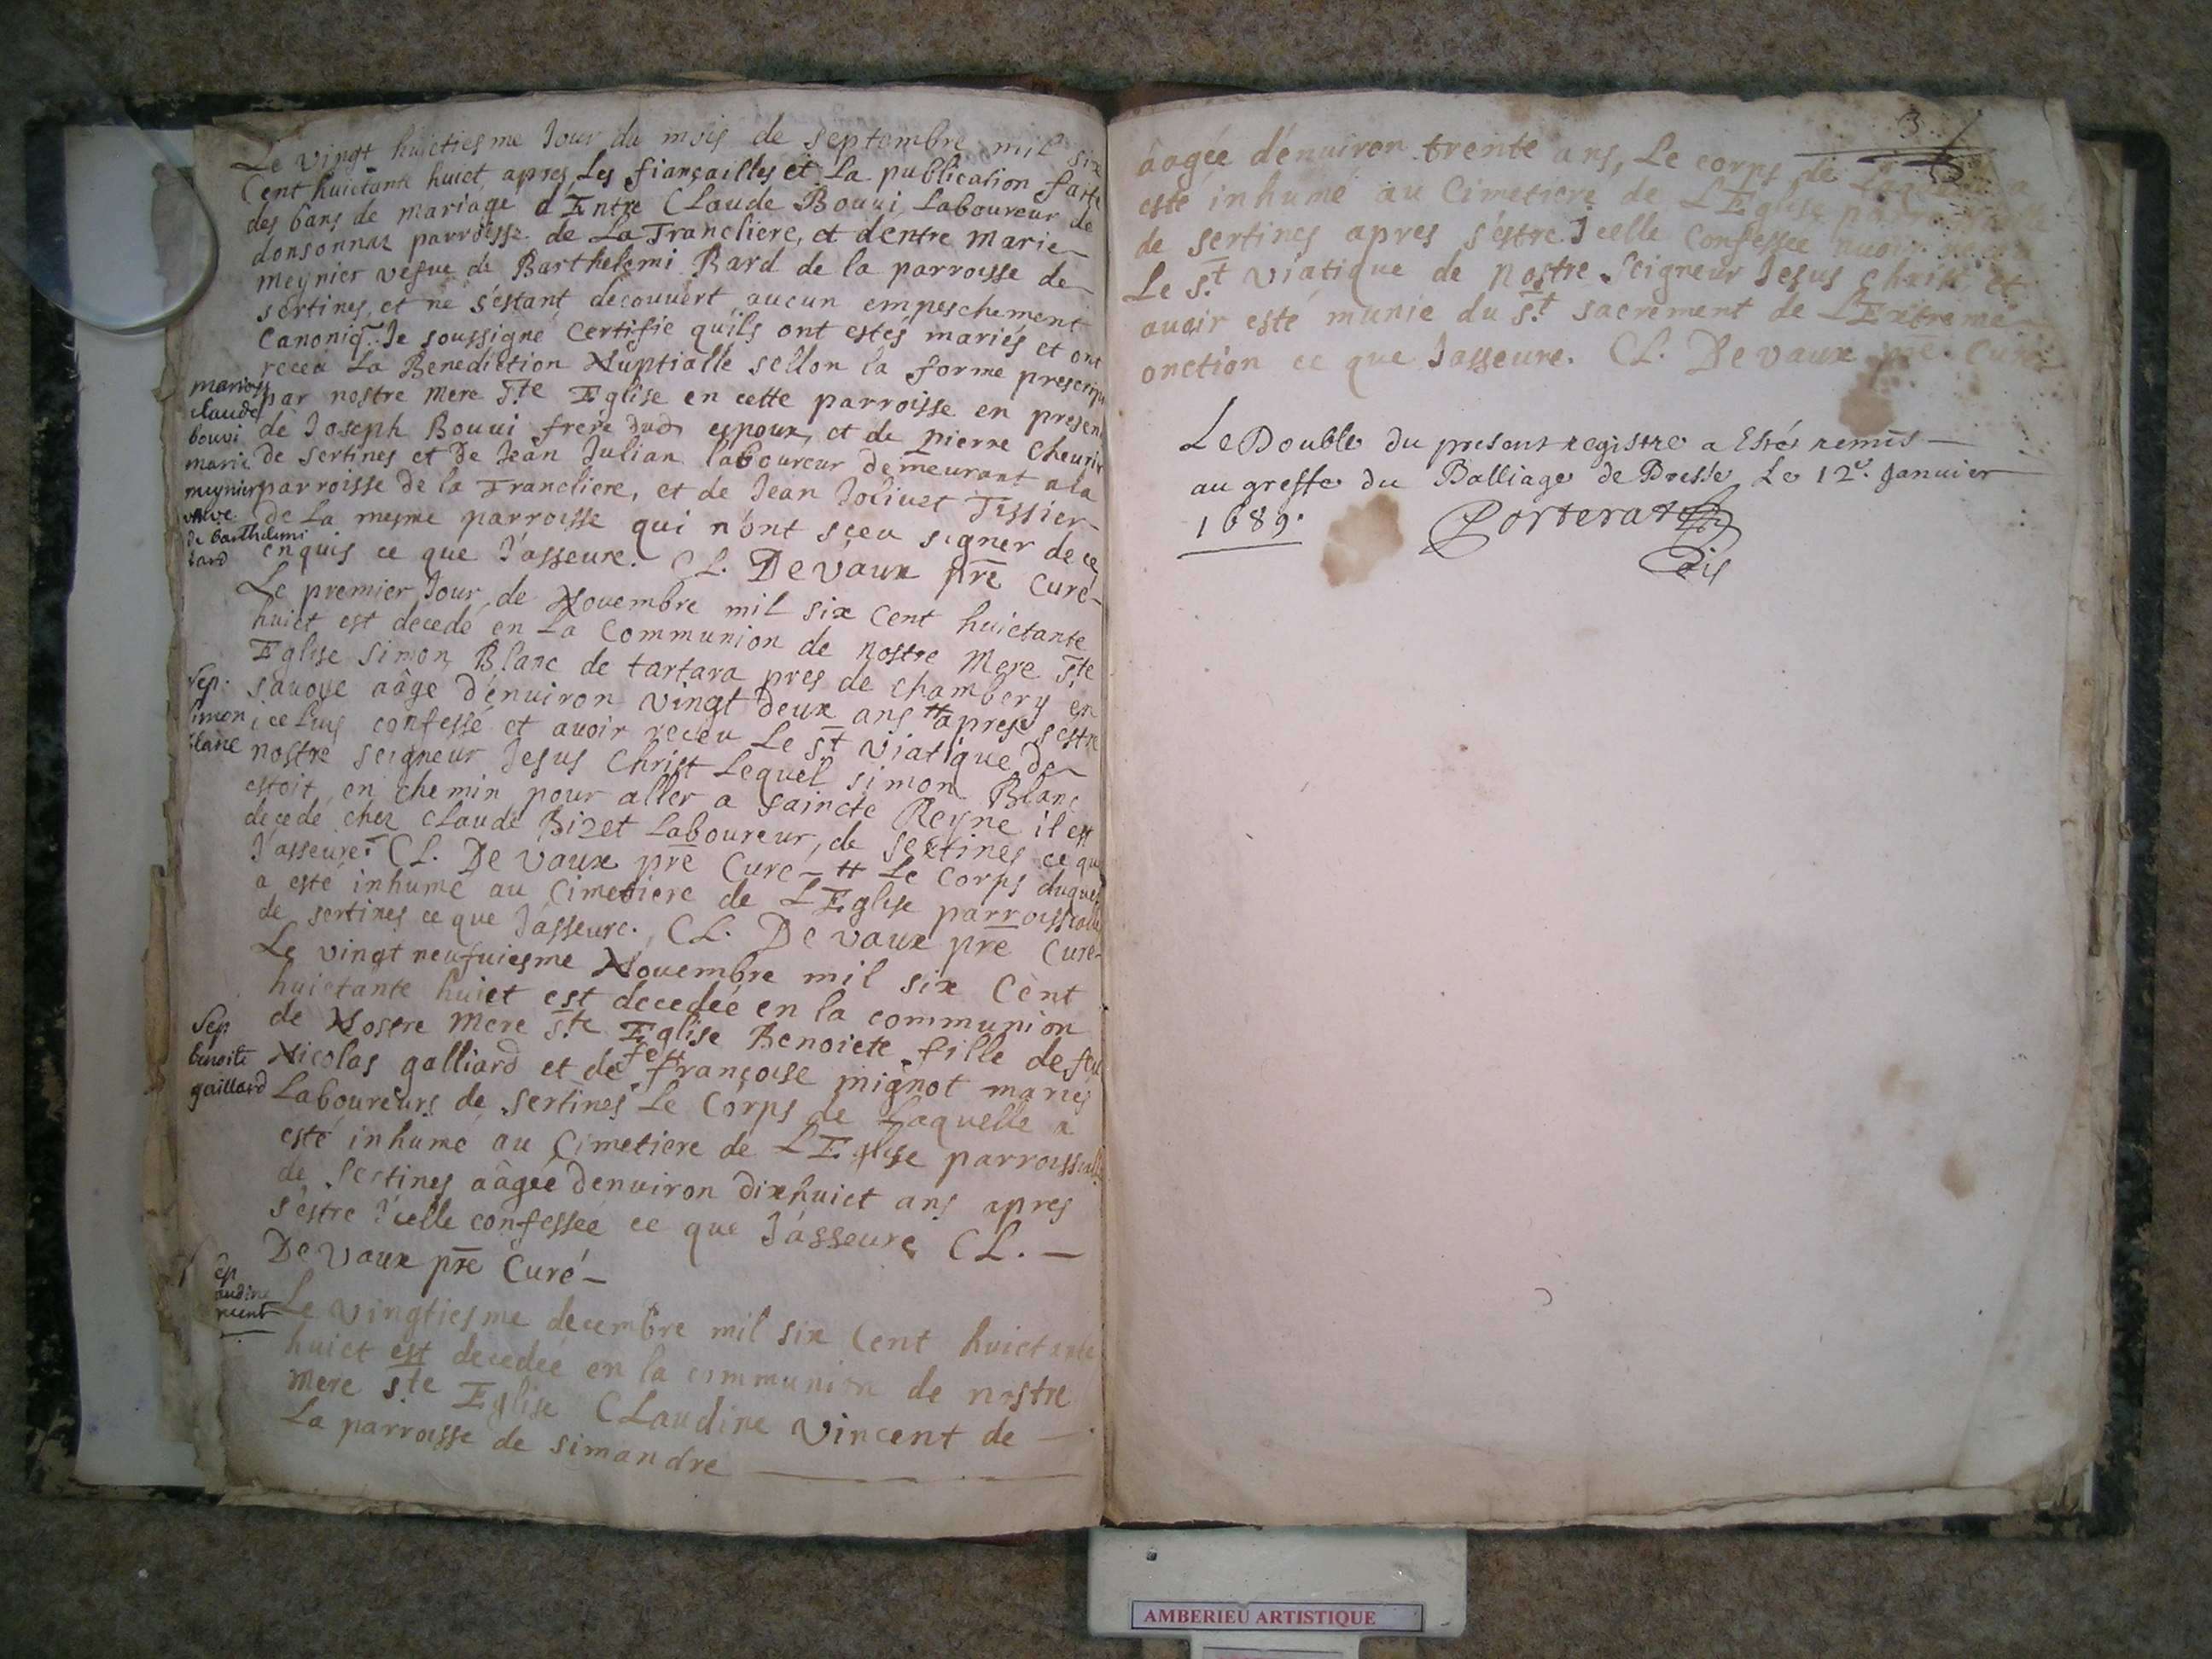 Le vingt huictiesme Jour du mois de septembre mil six
Cent huictante huict apres Les fiançailles et La publication faite
des bans de mariage d'Entre CLaude Bouui Laboureur de
donsonnaz parroisse de La Trancliere, et dentre marie
meynier vefue de Barthelemi Bard de la parroisse de
sertines, et ne s'estant decouuert aucun empeschement
Canoniq. Je soussigné Certifie qu'ils ont estés mariés et ont
receu La Benediction Nuptialle sellon la forme
par nostre mere Ste Eglise en cette parroisse en
de Joseph Bouui frere dud espoux, et de pierre
de sertines et de Jean Julian laboureur demeurant a la
parroisse de la Trancliere, et de Jean Joliuet Tissier
de La mesme parroisse qui n'ont sçeu signer de ce
enquis ce que J'asseure. CL. De vaux pre Curé
mariage
claude
bouui
marie
meynier
vefve
de barthelemi
bard
Le premier Jour de Nouembre mil six Cent huictante
huict est decedé en La Communion de nostre Mere Ste
Eglise simon Blanc de tartara pres de chambery en
sauoye aâge d'enuiron vingt deux ans # apres s'estre
iceluy confessé et auoir receu Le St Viatique de
nostre seigneur Jesus Christ Lequel simon Blanc
estoit en chemin pour aller a saincte Reyne il est
decedé chez CLaude Bizet Laboureur, de sertines ce que
J'asseure. CL. De vaux pre Curé # Le Corps duquel
a esté inhumé au Cimetiere de L'Eglise parroissialle
de sertines ce que J'asseure. CL. De vaux pre Curé
Sep.
simon
blanc
Le vingt neufuiesme Nouembre mil six Cent
huictante huict est decedeé en la communion
de Nostre Mere Ste Eglise Benoiete fille de feu
Nicolas galliard et de feu françoise mignot mariés
Laboureurs de sertines Le Corps de Laquelle a
esté inhumé au Cimetiere de L'Eglise parroissialle
de sertines aâgeé denuiron dixhuict ans apres
s'estre icelle confesseé ce que J'asseure CL.
De vaux pre Curé
Sep
benoite
gaillard
Le vingtiesme decembre mil six Cent huictante
huict est decedeé en la communion de nostre
mere ste Eglise CLaudine Vincent de
La parroisse de simandre
3
aâgée d'enuiron trente ans, Le corps de Laquelle a
esté inhumé au Cimetiere de L'Eglise parroissialle
de sertines apres s'estre Jcelle Confesseé auoir receu
Le St Viatique de nostre seigneur Jesus Christ et
auoir esté munie du St sacrement de L'Extreme
onction ce que Jasseure. CL. De vaux pre Curé
Le Double du present registre a Esté remis
au greffe du Balliage de Bresse Le 12e. Januier
1689.
Porterat
AMBERIEU ARTISTIQUE